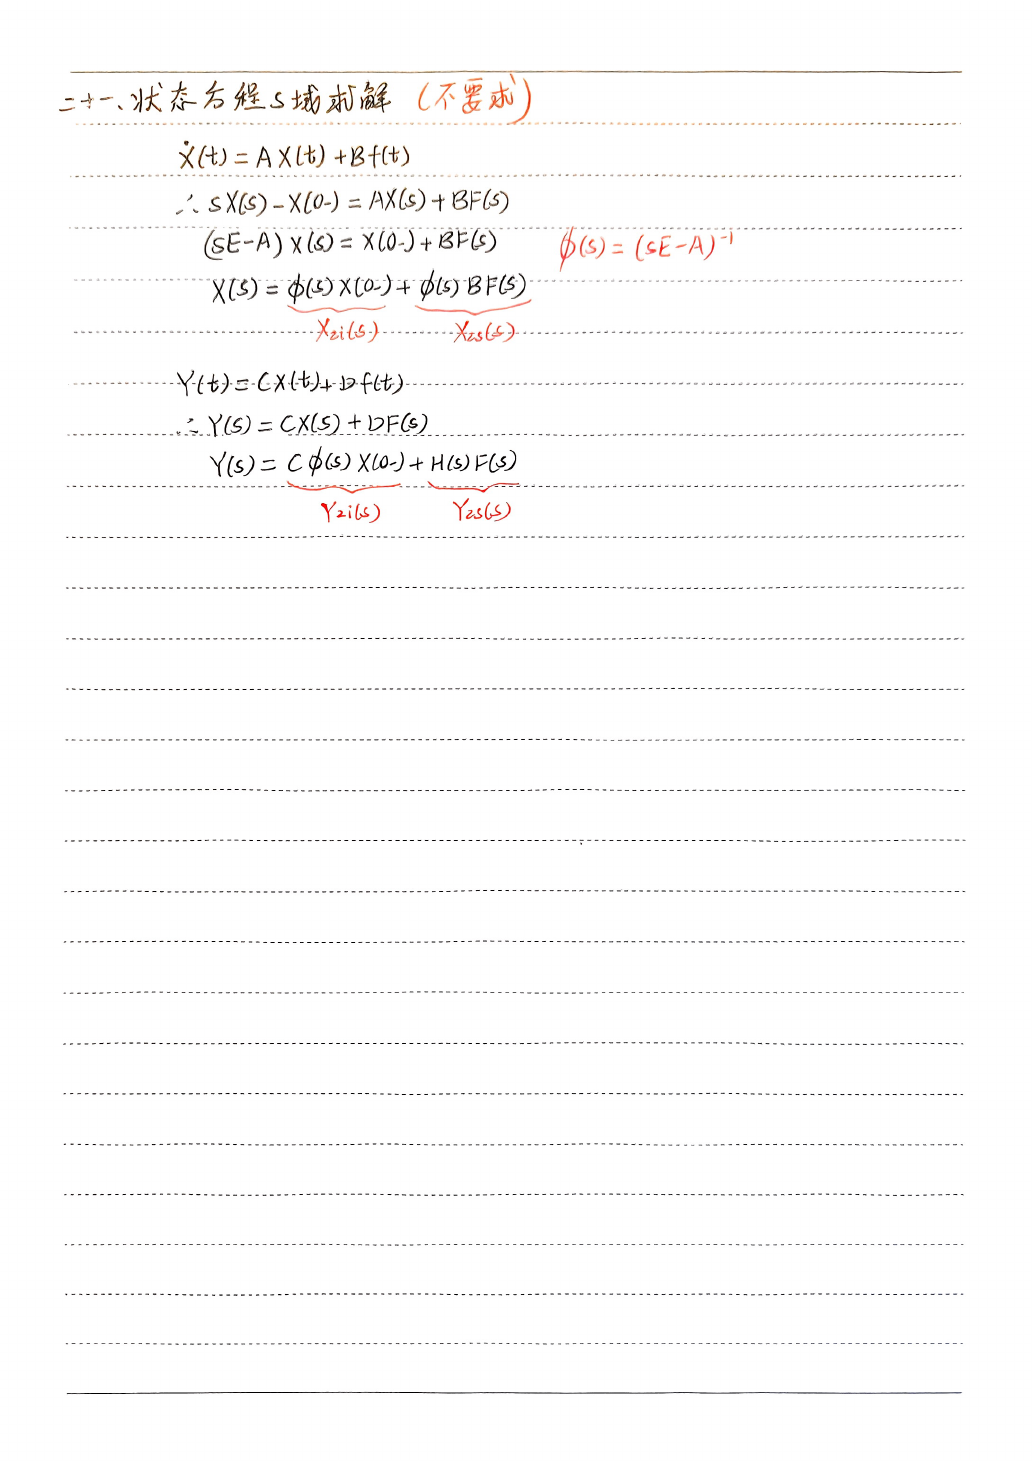 二十一、状态方程S域求解 (不要求)
Ẋ(t) = AX(t) + Bf(t)
∴ sX(s) - X(0-) = AX(s) + BF(s)
(sE-A) X(s) = X(0-) + BF(s) φ(s) = (sE-A)⁻¹
X(s) = φ(s)X(0-) + φ(s)BF(s)
Xzi(s) Xzs(s)
Y(t) = CX(t) + Df(t)
∴ Y(s) = CX(s) + DF(s)
Y(s) = Cφ(s)X(0-) + H(s)F(s)
Yzi(s) Yzs(s)